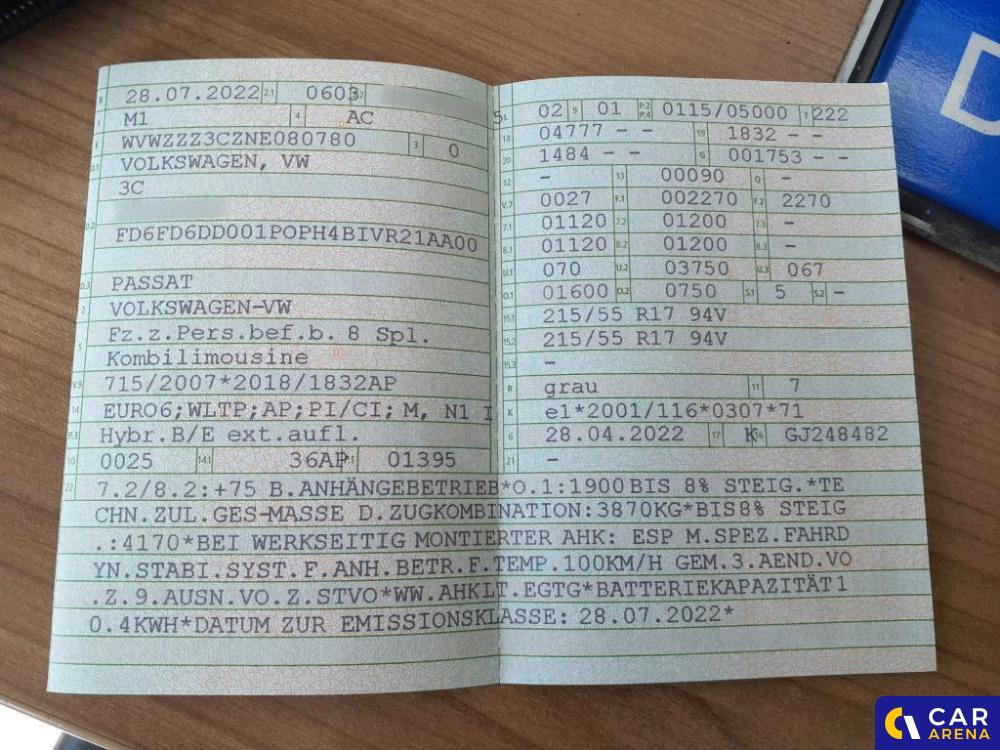 B 28.07.2022 2.1 0603 2.2
J M1 4 AC
E WVWZZZ3CZNE080780 3 0
D.1 VOLKSWAGEN, VW
3C
D.2 FD6FD6DD001POPH4BIVR21AA00
D.3 PASSAT
2 VOLKSWAGEN-VW
5 Fz.z.Pers.bef.b. 8 Spl.
Kombilimousine
V.9 715/2007*2018/1832AP
14 EURO6;WLTP;AP;PI/CI; M, N1 I
P.3 Hybr.B/E ext.aufl.
10 0025 14.1 36AP P.1 01395
L 02 9 01 P.2 P.4 0115/05000 T 222
18 04777 - - 19 1832 - -
20 1484 - - G 001753 - -
12 - 13 00090 Q -
V.7 0027 F.1 002270 F.2 2270
7.1 01120 7.2 01200 7.3 -
8.1 01120 8.2 01200 8.3 -
U.1 070 U.2 03750 U.3 067
O.1 01600 O.2 0750 S.1 5 S.2 -
15.1 215/55 R17 94V
15.2 215/55 R17 94V
15.3 -
R grau 11 7
K e1*2001/116*0307*71
6 28.04.2022 17 K 16 GJ248482
21 -
22 7.2/8.2:+75 B.ANHÄNGEBETRIEB*O.1:1900BIS 8% STEIG.*TE
CHN.ZUL.GES-MASSE D.ZUGKOMBINATION:3870KG*BIS8% STEIG
.:4170*BEI WERKSEITIG MONTIERTER AHK: ESP M.SPEZ.FAHRD
YN.STABI.SYST.F.ANH.BETR.F.TEMP.100KM/H GEM.3.AEND.VO
.Z.9.AUSN.VO.Z.STVO*WW.AHKLT.EGTG*BATTERIEKAPAZITÄT1
0.4KWH*DATUM ZUR EMISSIONSKLASSE: 28.07.2022*
D
CAR
ARENA